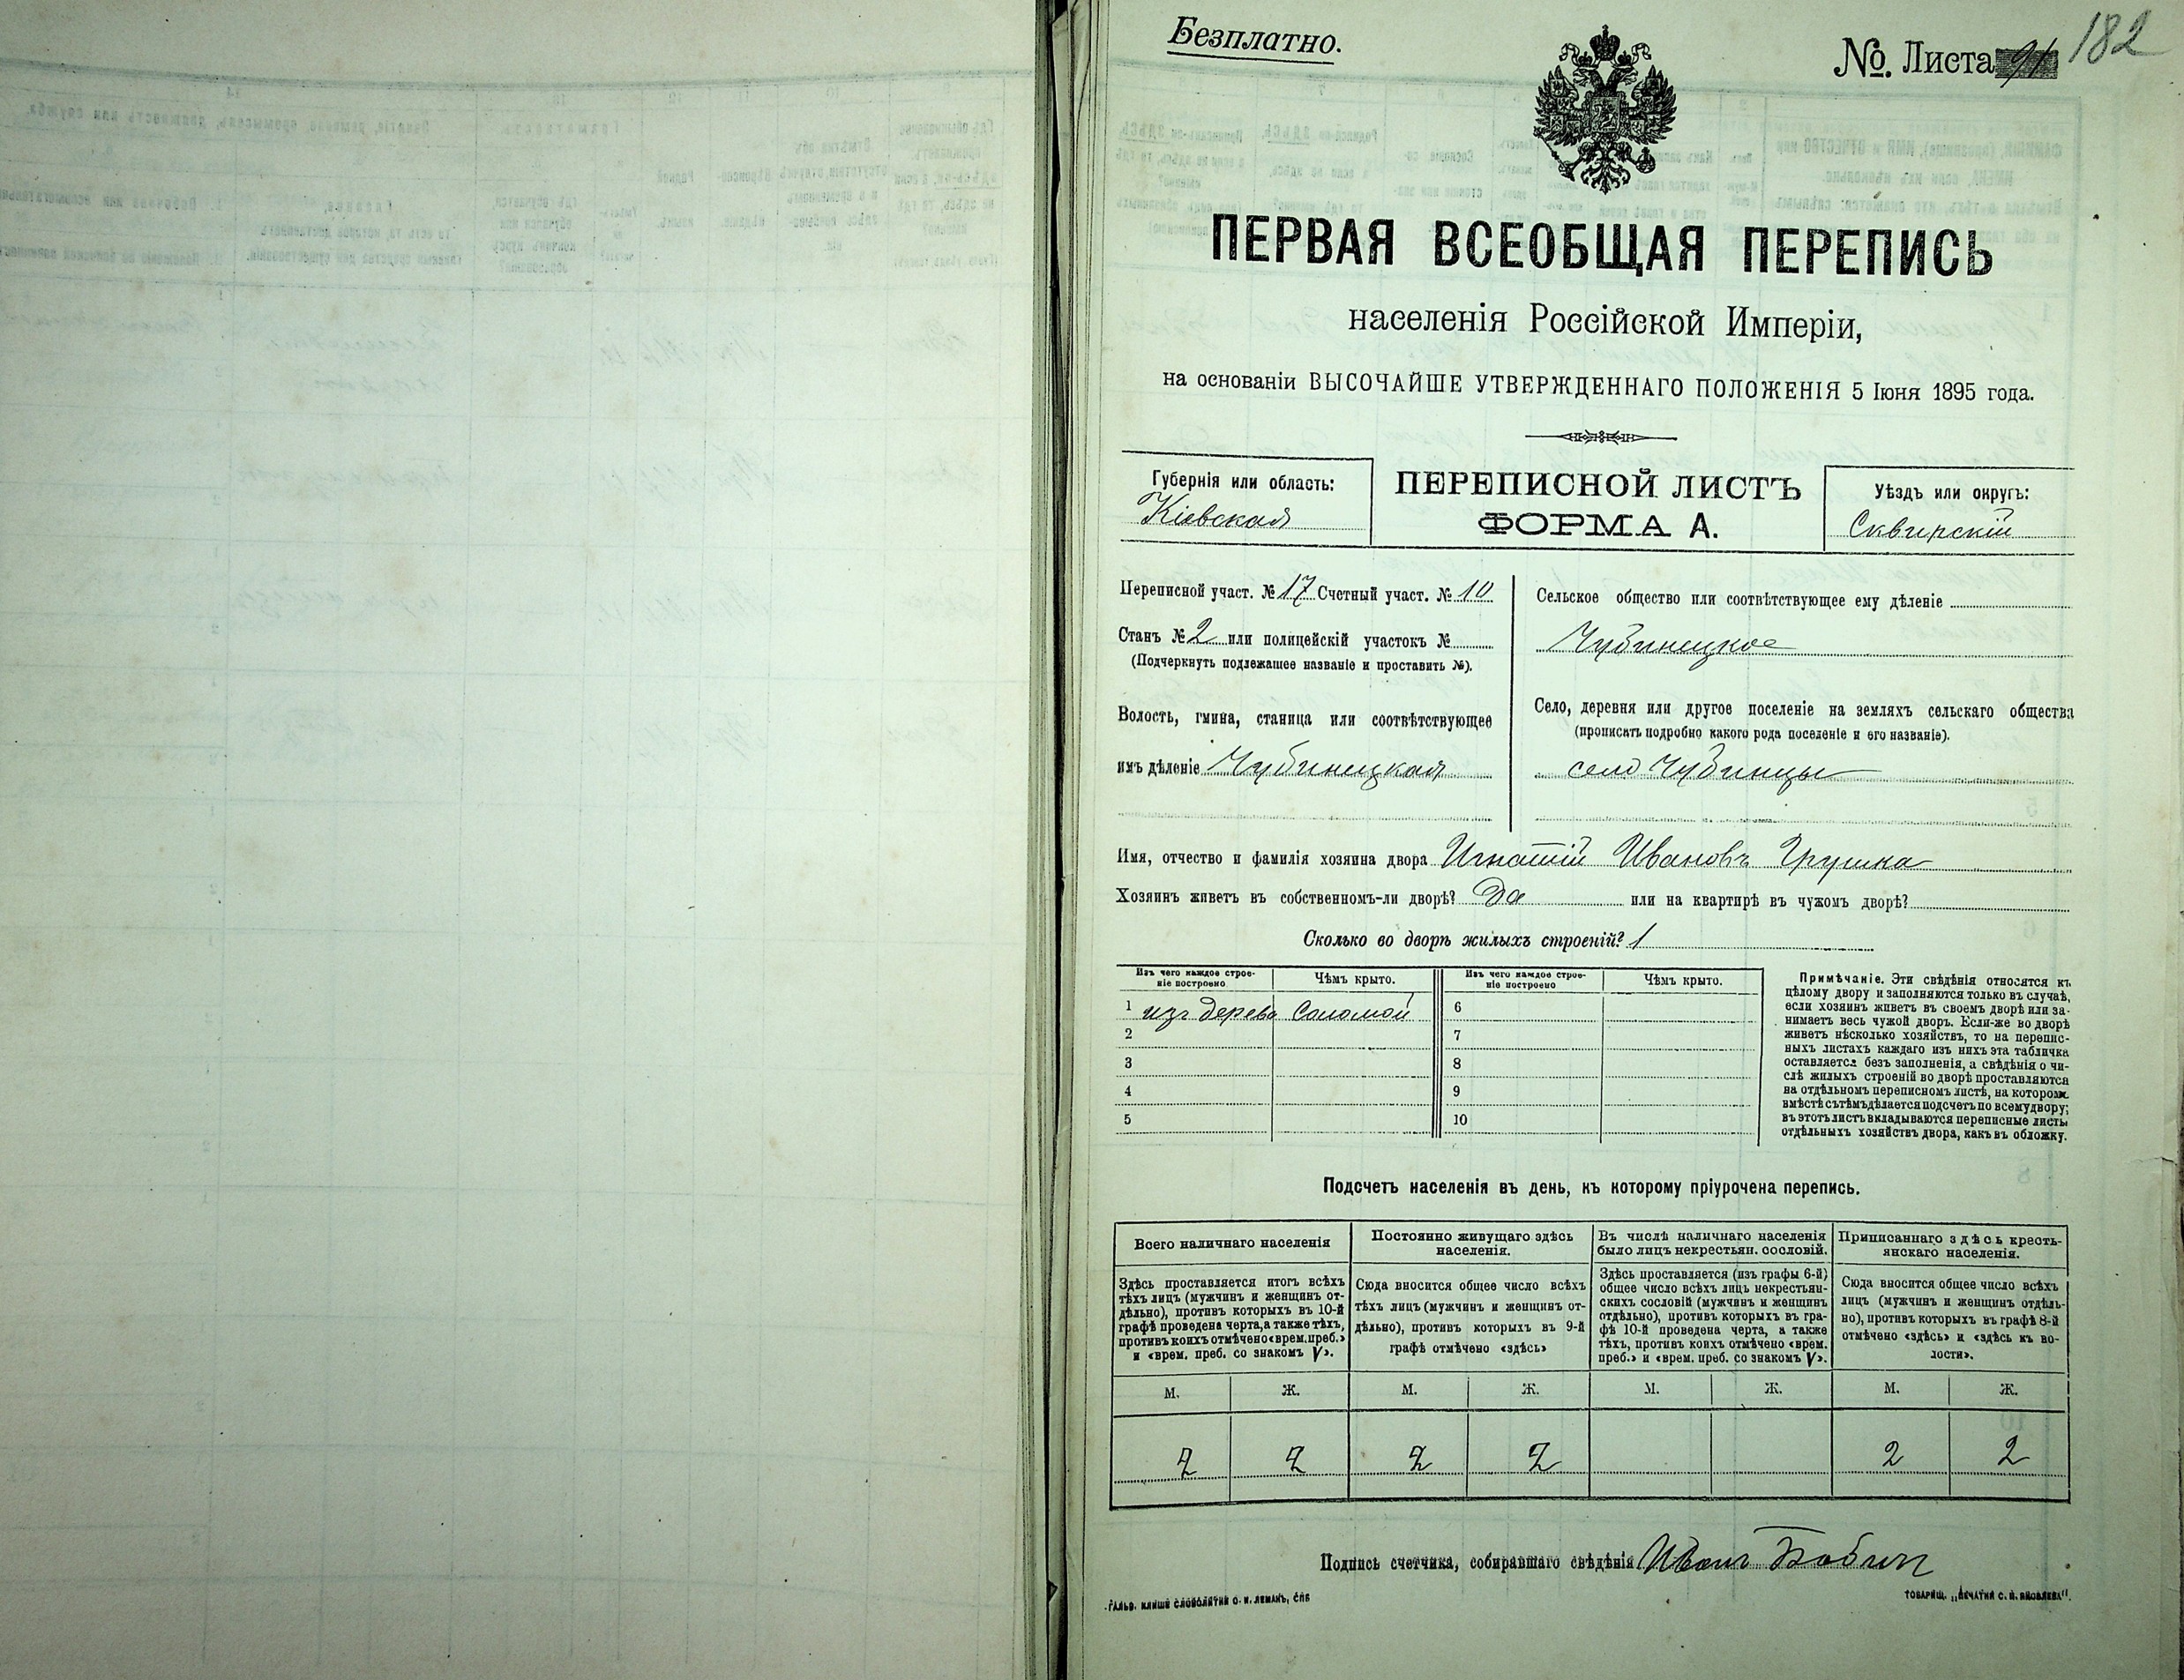 Безплатно.
№. Листа 91 182
ПЕРВАЯ ВСЕОБЩАЯ ПЕРЕПИСЬ
населенія Россійской Имперіи,
на основаніи ВЫСОЧАЙШЕ УТВЕРЖДЕННАГО ПОЛОЖЕНІЯ 5 Іюня 1895 года.
Губернія или область:
Кіевская
ПЕРЕПИСНОЙ ЛИСТЪ
ФОРМА А.
Уѣздъ или округъ:
Сквирскій
Переписной участ. № 17 Счетный участ. № 10
Станъ № 2 или полицейскій участокъ №
(Подчеркнуть подлежащее названіе и проставить №).
Волость, гмина, станица или соотвѣтствующее
имъ дѣленіе Чубинецкая
Сельское общество или соотвѣтствующее ему дѣленіе
Чубинецкое
Село, деревня или другое поселеніе на земляхъ сельскаго общества
(прописать подробно какого рода поселеніе и его названіе).
село Чубинцы
Имя, отчество и фамилія хозяина двора Игнатій Ивановъ Грушка
Хозяинъ живетъ въ собственномъ-ли дворѣ? Да или на квартирѣ въ чужомъ дворѣ?
Сколько во дворѣ жилыхъ строеній? 1
Изъ чего каждое строе-
ніе построено
Чѣмъ крыто.
Изъ чего каждое строе-
ніе построено
Чѣмъ крыто.
1 изъ дерева Соломой 6
2 7
3 8
4 9
5 10
Примѣчаніе. Эти свѣдѣнія относятся къ
цѣлому двору и заполняются только въ случаѣ,
если хозяинъ живетъ въ своемъ дворѣ или за-
нимаетъ весь чужой дворъ. Если-же во дворѣ
живетъ нѣсколько хозяйствъ, то на перепис-
ныхъ листахъ каждаго изъ нихъ эта табличка
оставляется безъ заполненія, а свѣдѣнія о чи-
слѣ жилыхъ строеній во дворѣ проставляются
на отдѣльномъ переписномъ листѣ, на которомъ
вмѣстѣ съ тѣмъ дѣлается подсчетъ по всему двору;
въ этотъ листъ вкладываются переписные листы
отдѣльныхъ хозяйствъ двора, какъ въ обложку.
Подсчетъ населенія въ день, къ которому пріурочена перепись.
Всего наличнаго населенія
Здѣсь проставляется итогъ всѣхъ
тѣхъ лицъ (мужчинъ и женщинъ от-
дѣльно), противъ которыхъ въ 10-й
графѣ проведена черта, а также тѣхъ,
противъ коихъ отмѣчено «врем. преб.»
и «врем. преб. со знакомъ V».
Постоянно живущаго здѣсь
населенія.
Сюда вносится общее число всѣхъ
тѣхъ лицъ (мужчинъ и женщинъ от-
дѣльно), противъ которыхъ въ 9-й
графѣ отмѣчено «здѣсь»
Въ числѣ наличнаго населенія
было лицъ некрестьян. сословій.
Здѣсь проставляется (изъ графы 6-й)
общее число всѣхъ лицъ некрестьян-
скихъ сословій (мужчинъ и женщинъ
отдѣльно), противъ которыхъ въ гра-
фѣ 10-й проведена черта, а также
тѣхъ, противъ коихъ отмѣчено «врем.
преб.» и «врем. преб. со знакомъ V».
Приписаннаго здѣсь кресть-
янскаго населенія.
Сюда вносится общее число всѣхъ
лицъ (мужчинъ и женщинъ отдѣль-
но), противъ которыхъ въ графѣ 8-й
отмѣчено «здѣсь» и «здѣсь къ во-
лости».
М. Ж. М. Ж. М. Ж. М. Ж.
2 2 2 2 2 2
Подпись счетчика, собиравшаго свѣдѣнія Иванъ
ГАЛЬВ. КЛИШЕ СЛОВОЛИТНИ О. И. ЛЕМАНЪ, СПБ
ТОВАРИЩ. „ПЕЧАТНИ С. П. ЯКОВЛЕВА".